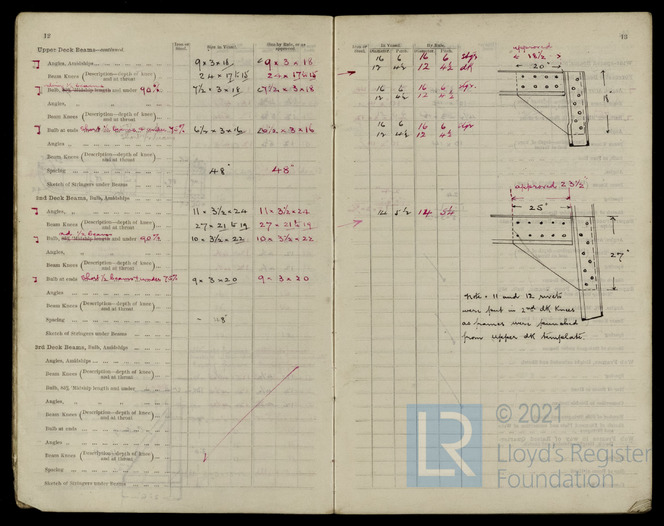 12
Upper Deck Beams—continued.
Size in Vessel.
Size by Rule, or as approved.
Angles, Amidships
9 x 3 x 18
9 x 3 x 18
Beam Knees (Description—depth of knee and at throat)
Bulb, and under 90%
7½ x 3 x 18
7½ x 3 x 18
Angles,
Beam Knees (Description—depth of knee and at throat)
Bulb at ends
6½ x 3 x 16
6½ x 3 x 16
Angles
Beam Knees (Description—depth of knee and at throat)
Spacing
48"
48"
Sketch of Stringers under Beams
2nd Deck Beams, Bulb, Amidships
Angles,
11 x 3½ x 24
11 x 3½ x 24
Beam Knees (Description—depth of knee and at throat)
27 x 21 x 19
27 x 21 x 19
Bulb, and under 90%
10 x 3½ x 22
10 x 3½ x 22
Angles,
Beam Knees (Description—depth of knee and at throat)
Bulb at ends
9 x 3 x 20
9 x 3 x 20
Angles
Beam Knees (Description—depth of knee and at throat)
Spacing
48"
Sketch of Stringers under Beams
3rd Deck Beams, Bulb, Amidships
Angles, Amidships
Beam Knees (Description—depth of knee and at throat)
Bulb, Midship length and under
Angles,
Beam Knees (Description—depth of knee and at throat)
Bulb at ends
Angles
Beam Knees (Description—depth of knee and at throat)
Spacing
Sketch of Stringers under Beams
In Vessel.
By Rule.
Diameter.
Pitch.
Diameter.
Pitch.
16 6 16 6
12 4½ 12 4½
16 6 16 6
12 4½ 12 4½
16 6 16 6
12 4½ 12 4½
approved
18½
20"
approved 23½"
25"
27"
Note. 11 and 12 rivets
were put in 2nd dk Knees
as frames were punched
from upper dk template.
LR
© 2021
Lloyd's Register
Foundation